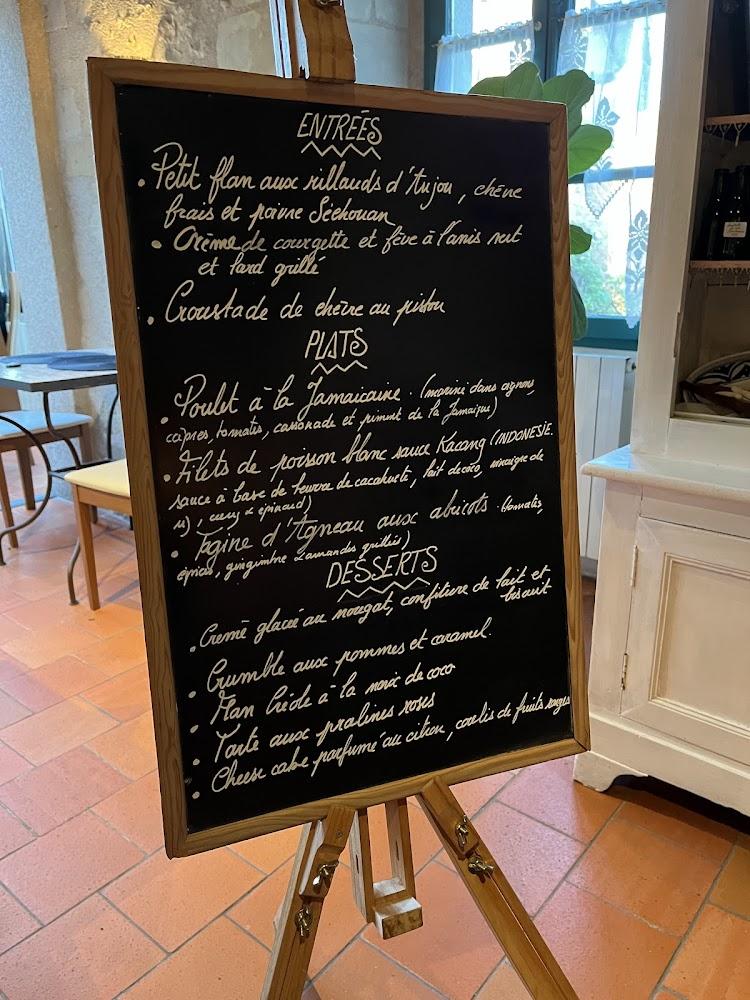 ENTRÉES
• Petit flan aux rillauds d'Anjou, chèvre
frais et poivre Séchouan
• Crème de courgette et fève à l'anis vert
et lard grillé
• Croustade de chèvre au pistou
PLATS
• Poulet à la Jamaicaine. (mariné dans oignons,
câpres, tomates, cassonade et piment de la Jamaïque)
• Filets de poisson blanc sauce Kacang (INDONESIE.
sauce à base de beurre de cacahuète, lait de coco, vinaigre de
riz, curry & épinard)
• Tagine d'Agneau aux abricots. (tomates,
épices, gingimbre & amandes grillées)
DESSERTS
• Crème glacée au nougat, confiture de lait et
biscuit
• Crumble aux pommes et caramel.
• Flan Créole à la noix de coco
• Tarte aux pralines roses
• Cheese cake parfumé au citron, coulis de fruits rouges